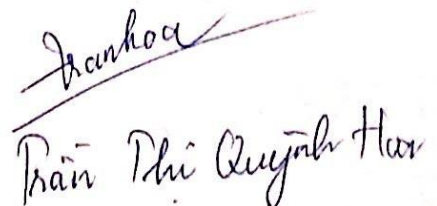 Tranhoa
Trần Thị Quỳnh Hoa